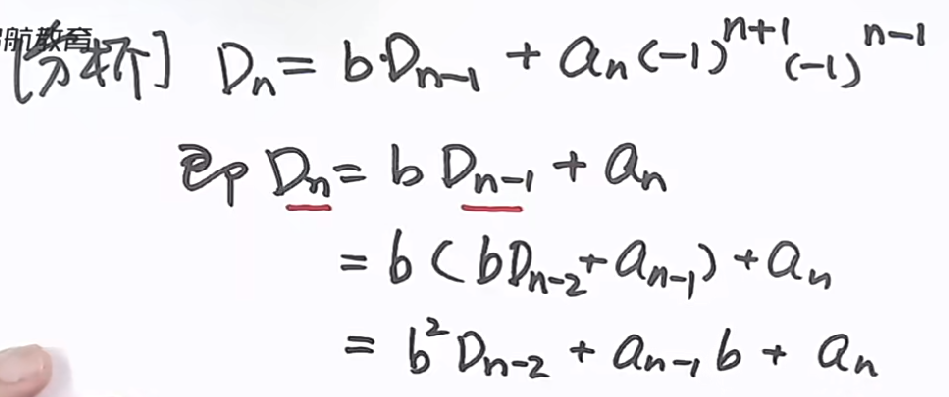 航教育
[分析] Dₙ = b·Dₙ₋₁ + aₙ(-1)ⁿ⁺¹(-1)ⁿ⁻¹
即 Dₙ = b Dₙ₋₁ + aₙ
= b ( bDₙ₋₂ + aₙ₋₁ ) + aₙ
= b² Dₙ₋₂ + aₙ₋₁ b + aₙ